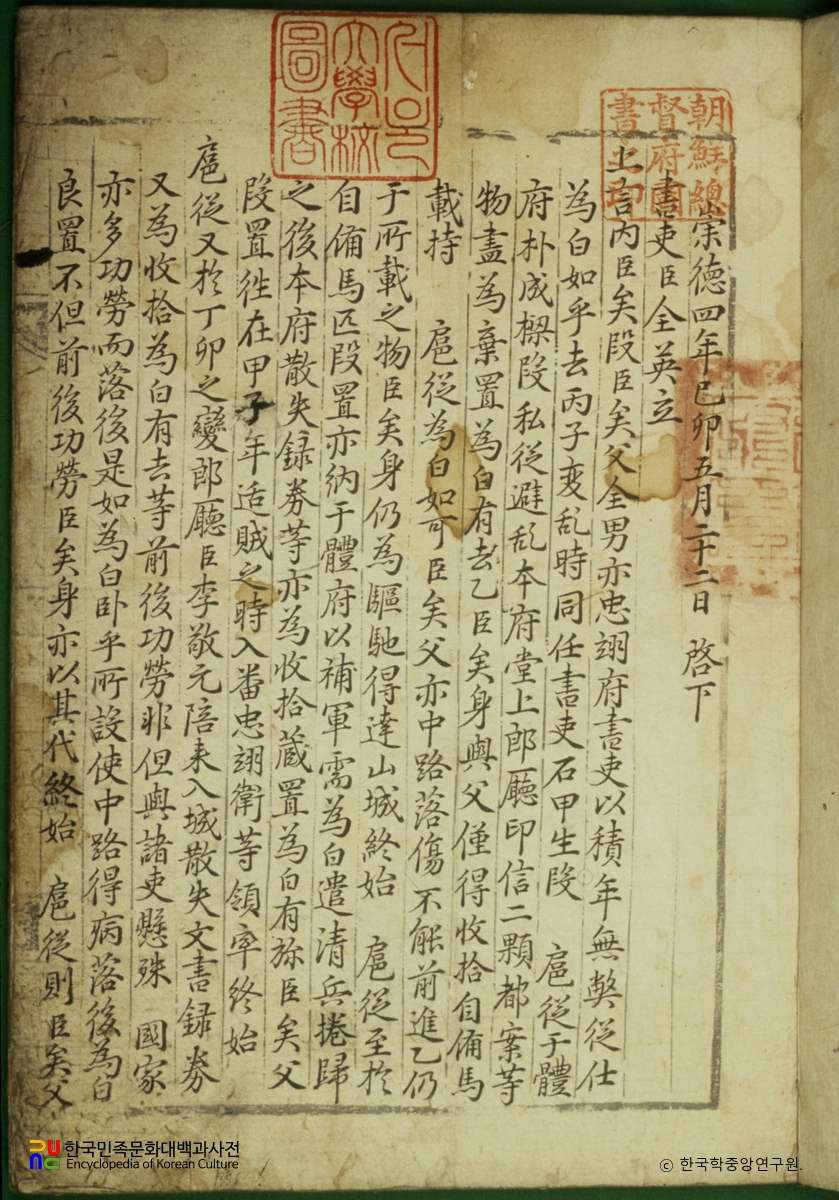 崇德四年己卯五月二十二日 啓下
書吏臣全英立
上言內臣矣段臣矣父全男亦忠翊府書吏以積年無弊從仕
為白如乎去丙子変乱時同任書吏石甲生段 扈從于體
府朴成樑段私從避乱本府堂上郎廳印信二顆都案等
物盡為棄置為白有去乙臣矣身與父僅得收拾自俻馬
載持 扈從為白如可臣矣父亦中路落傷不能前進乙仍
于所載之物臣矣身仍為驅馳得達山城終始 扈從至於
自俻馬匹段置亦納于體府以補軍需為白遣清兵捲歸
之後本府散失録券等亦為收拾蔵置為白有旀臣矣父
段置徃在甲子年适賊之時入番忠翊衛等領率終始
扈從又於丁卯之變郎廳臣李敬元陪来入城散失文書録券
又為收拾為白有去等前後功勞非但與諸吏懸殊 國家
亦多功勞而落後是如為白卧乎所設使中路得病落後為白
良置不但前後功勞臣矣身亦以其代終始 扈從則臣矣父
朝鮮總
督府圖
書之印
서울
大學校
圖書
한국민족문화대백과사전
Encyclopedia of Korean Culture
ⓒ 한국학중앙연구원.